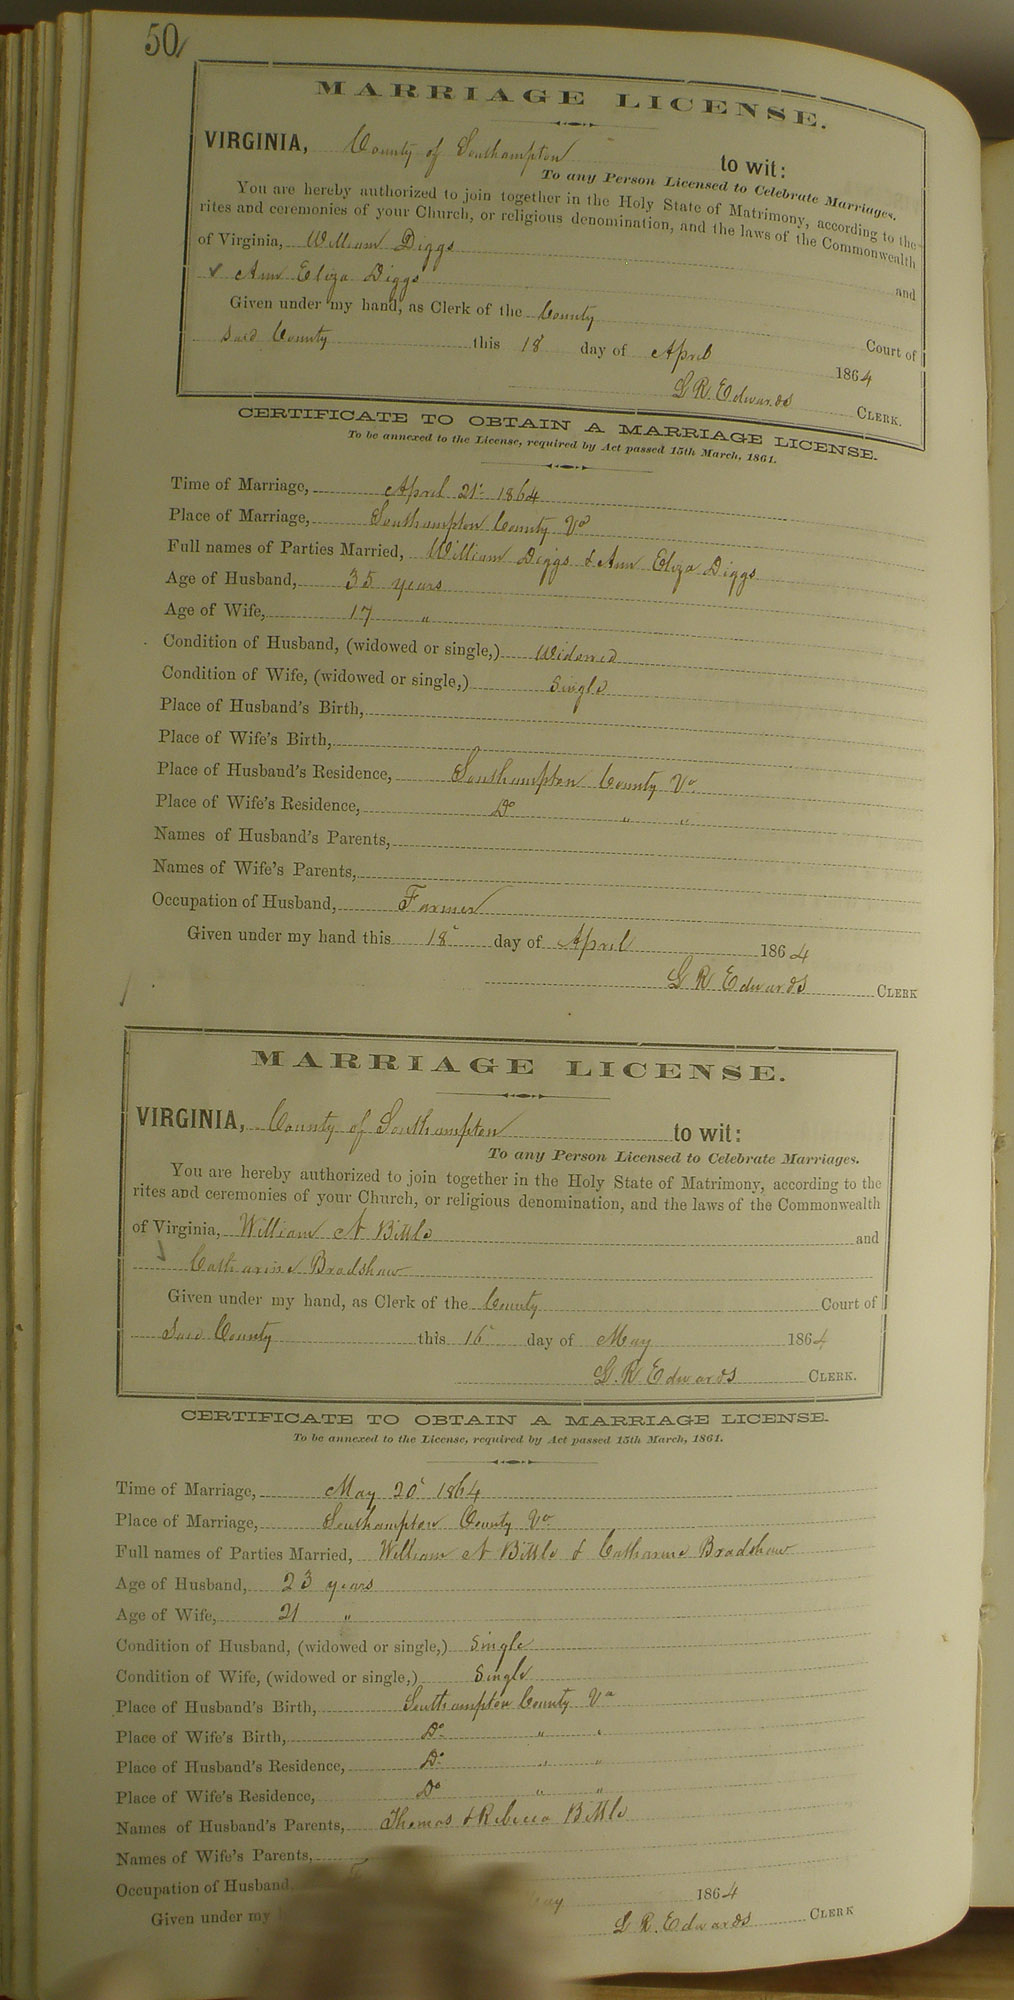 50
MARRIAGE LICENSE.
VIRGINIA, County of Southampton to wit:
To any Person Licensed to Celebrate Marriages.
You are hereby authorized to join together in the Holy State of Matrimony, according to the
rites and ceremonies of your Church, or religious denomination, and the laws of the Commonwealth
of Virginia, William Diggs and
Ann Eliza Diggs
Given under my hand, as Clerk of the County Court of
said County this 18 day of April 1864
G R. Edwards CLERK.
CERTIFICATE TO OBTAIN A MARRIAGE LICENSE.
To be annexed to the License, required by Act passed 15th March, 1861.
Time of Marriage, April 21st 1864
Place of Marriage, Southampton County Va
Full names of Parties Married, William Diggs & Ann Eliza Diggs
Age of Husband, 35 years
Age of Wife, 17 "
Condition of Husband, (widowed or single,) Widowed
Condition of Wife, (widowed or single,) Single
Place of Husband's Birth,
Place of Wife's Birth,
Place of Husband's Residence, Southampton County Va
Place of Wife's Residence, Do " "
Names of Husband's Parents,
Names of Wife's Parents,
Occupation of Husband, Farmer
Given under my hand this 18 day of April 1864
G R Edwards CLERK
MARRIAGE LICENSE.
VIRGINIA, County of Southampton to wit:
To any Person Licensed to Celebrate Marriages.
You are hereby authorized to join together in the Holy State of Matrimony, according to the
rites and ceremonies of your Church, or religious denomination, and the laws of the Commonwealth
of Virginia, William N Bittle and
Catharine Bradshaw
Given under my hand, as Clerk of the County Court of
Said County this 16 day of May 1864
G. R Edwards CLERK.
CERTIFICATE TO OBTAIN A MARRIAGE LICENSE.
To be annexed to the License, required by Act passed 15th March, 1861.
Time of Marriage, May 20 1864
Place of Marriage, Southampton County Va
Full names of Parties Married, William N Bittle & Catharine Bradshaw
Age of Husband, 23 years
Age of Wife, 21 "
Condition of Husband, (widowed or single,) Single
Condition of Wife, (widowed or single,) Single
Place of Husband's Birth, Southampton County Va
Place of Wife's Birth, Do " "
Place of Husband's Residence, Do " "
Place of Wife's Residence, Do " "
Names of Husband's Parents, Thomas & Rebecca Bittle
Names of Wife's Parents,
Occupation of Husband,
Given under my 1864
G R. Edwards CLERK